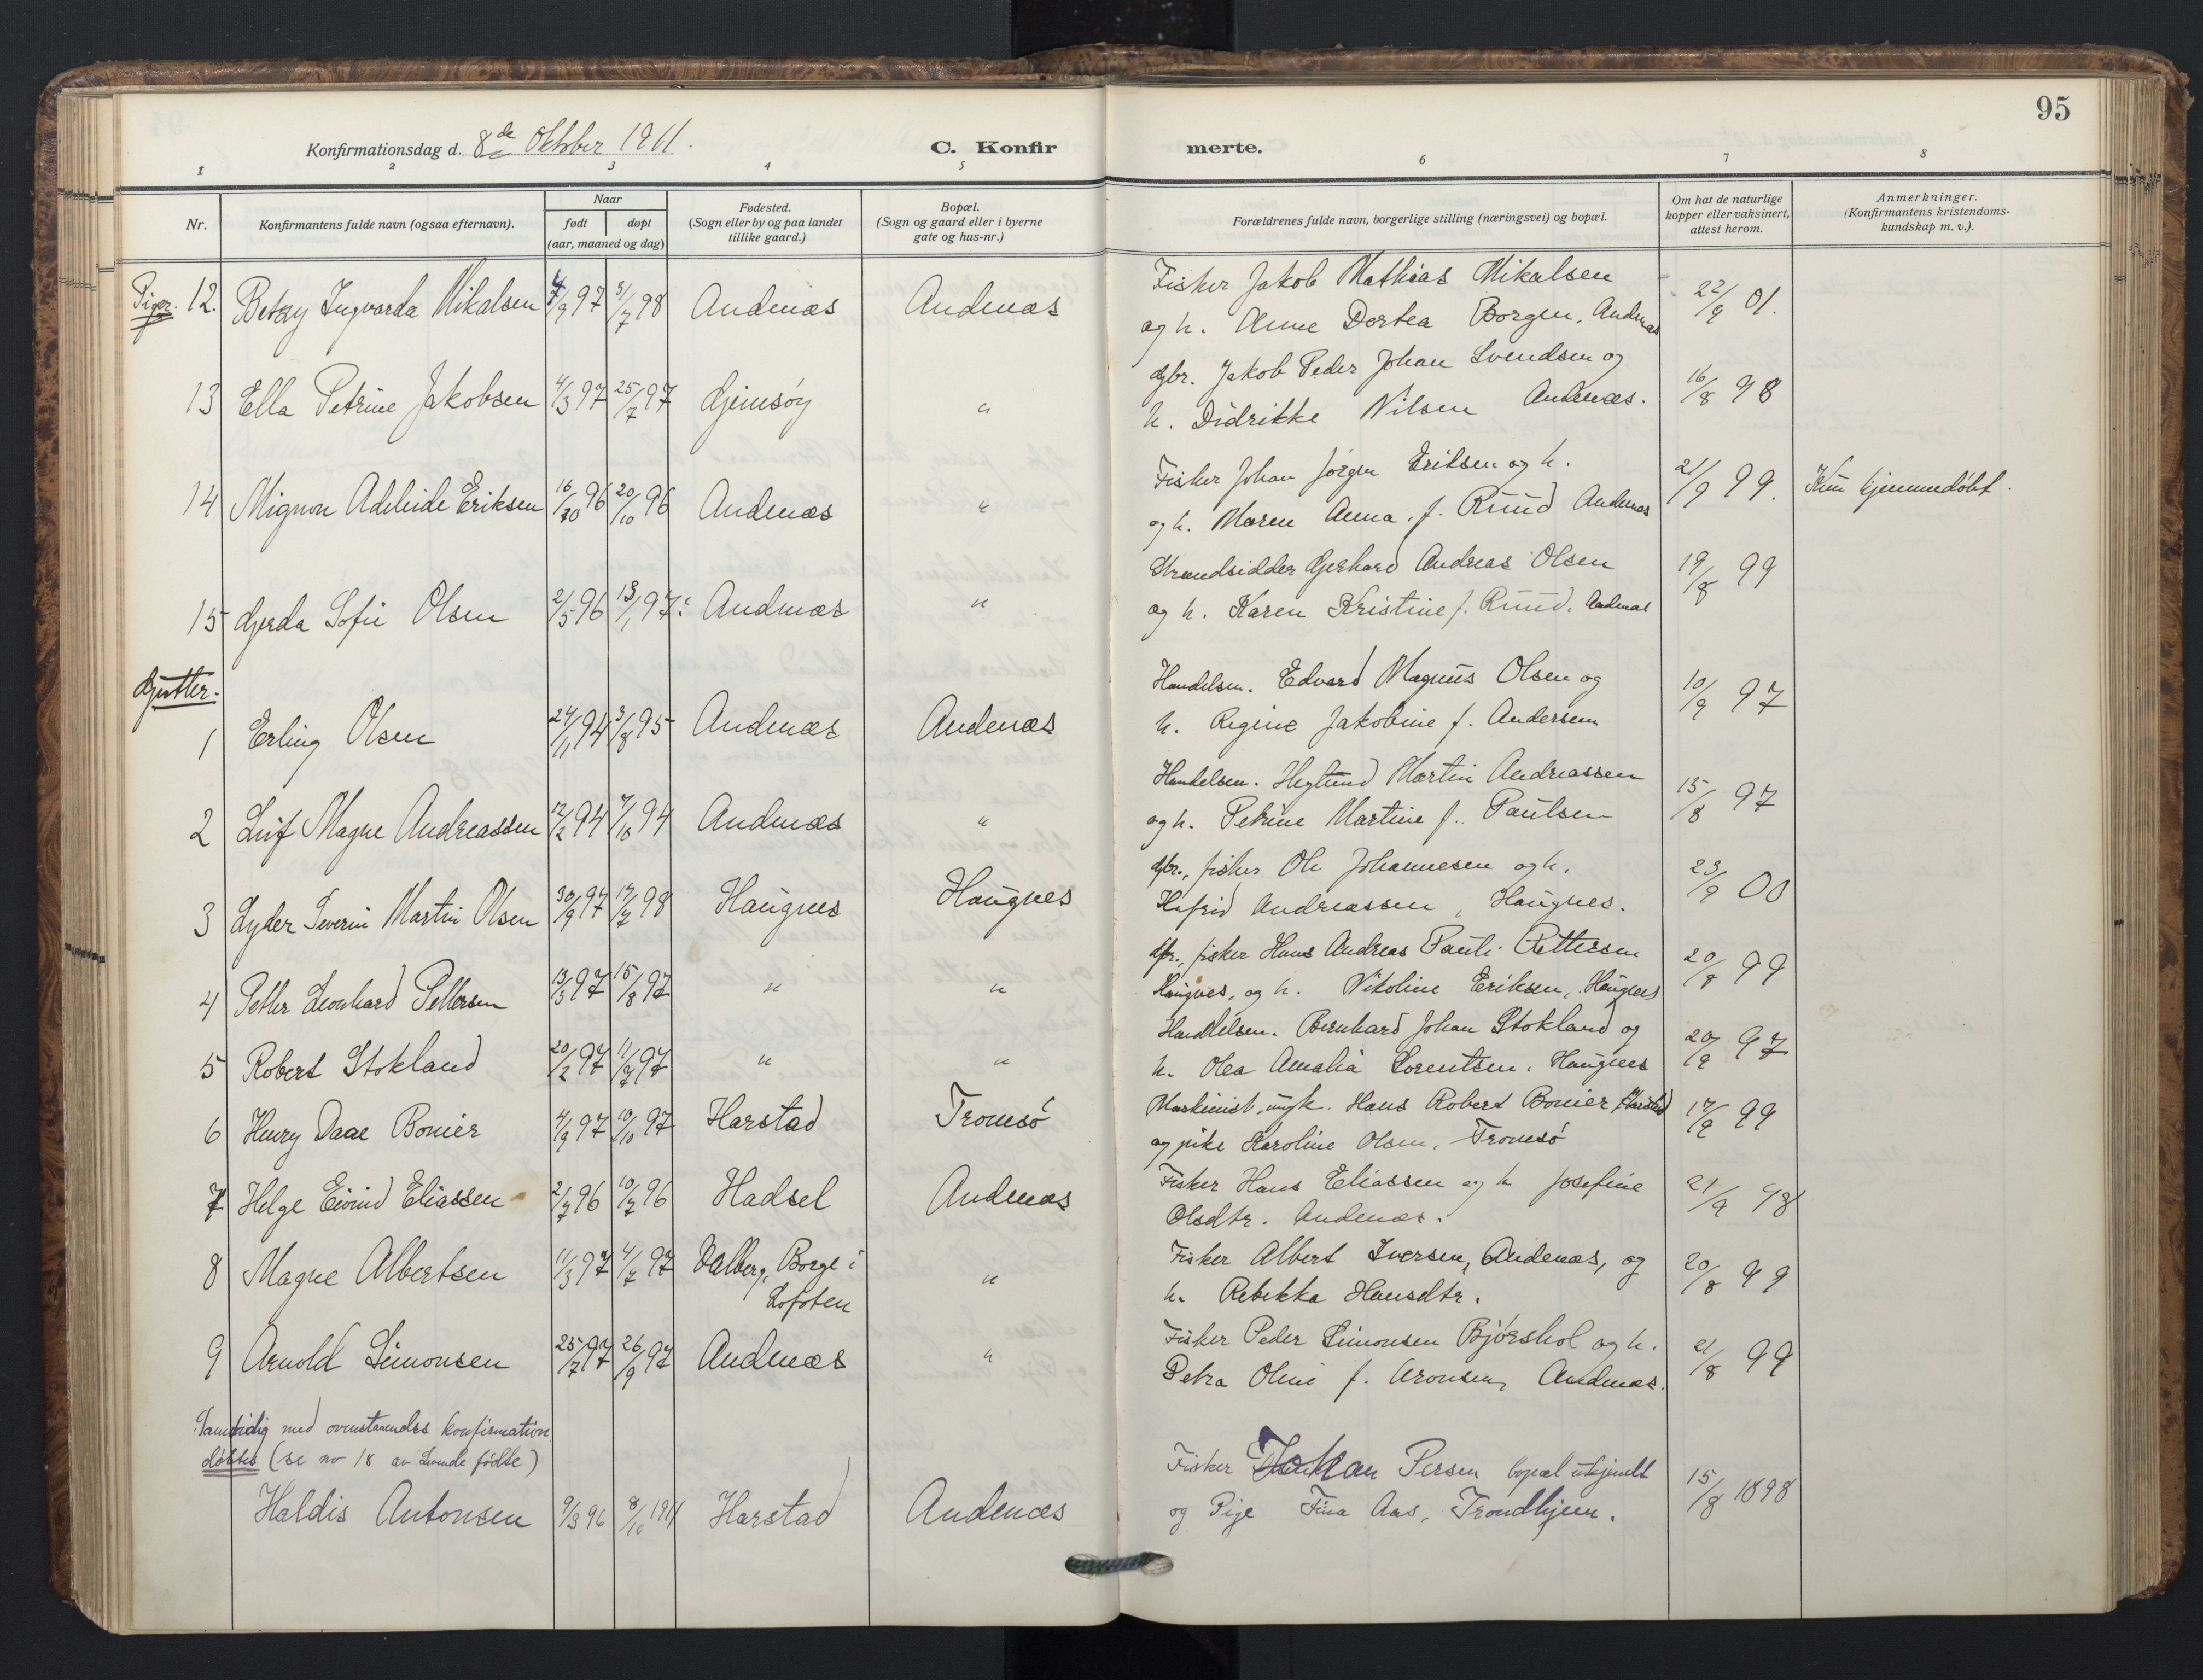 95
Konfirmationsdag d. 8de Oktober 1911.
C. Konfirmerte.
1 2 3 4 5 6 7 8
Nr.
Konfirmantens fulde navn (ogsaa efternavn).
Naar
født døpt
(aar, maaned og dag)
Fødested.
(Sogn eller by og paa landet
tillike gaard.)
Bopæl.
(Sogn og gaard eller i byerne
gate og hus-nr.)
Forældrenes fulde navn, borgerlige stilling (næringsvei) og bopæl.
Om hat de naturlige
kopper eller vaksinert,
attest herom.
Anmerkninger.
(Konfirmantens kristendoms-
kundskap m. v.).
Piger.
12. Betzy Ingvarda Mikalsen 4/9 97 31/7 98 Andenæs Andenæs
Fisker Jakob Mathias Mikalsen
og h. Anne Dortea Borgen, Andenæs
22/9 01.
13 Ella Petrine Jakobsen 4/3 97 25/7 97 Gjimsøy "
Gbr. Jakob Peder Johan Svendsen og
h. Didrikke Nilsen Andenæs.
16/8 98
14 Mignon Adeleide Eriksen 16/10 96 20/10 96 Andenæs "
Fisker Johan Jørgen Eriksen og h.
og h. Maren Anna f. Ruud Andenæs
21/9 99. Kun hjemmedøbt.
15 Gjerda Sofie Olsen 2/5 96 13/1 97 Andenæs "
Strandsidder Gjerhard Andreas Olsen
og h. Karen Kristine f. Ruud, Andenæs
19/8 99
Gutter.
1 Erling Olsen 24/11 94 3/8 95 Andenæs Andenæs
Handelsm. Edvard Magnus Olsen og
h. Regine Jakobine f. Andersen
10/9 97
2 Leif Magne Andreassen 12/2 94 7/10 94 Andenæs "
Handelsm. Heglund Martin Andreassen
og h. Petrine Martine f. Paulsen
15/8 97
3 Lyder Severin Martin Olsen 30/9 97 17/7 98 Haugnes Haugnes
Gbr., fisker Ole Johannesen og h.
Andreassen, Haugnes.
23/9 00
4 Petter Leonhard Pettersen 13/3 97 15/8 97 " "
Gbr., fisker Hans Andreas Pauli Pettersen
Haugnes, og h. Nikoline Eriksen, Haugnes
20/8 99
5 Robert Stokland 20/2 97 11/7 97 " "
Handelsm. Bernhard Johan Stokland og
h. Olea Amalia Lorentsen, Haugnes
20/9 97
6 Henry Daae Bonier 4/9 97 10/10 97 Harstad Tromsø
Maskinist, ungk. Hans Robert Bonier, Harstad
og pike Karoline Olsen, Tromsø
17/9 99
7 Helge Eivind Eliassen 2/7 96 10/7 96 Hadsel Andenæs
Fisker Hans Eliassen og h Josefine
Olsdtr. Andenæs.
21/9 98
8 Magne Albertsen 11/3 97 4/7 97 Valberg, Borge i "
Lofoten
Fisker Albert Iversen, Andenæs, og
h. Rebekka Hansdtr.
20/8 99
9 Arnold Simonsen 25/7 97 26/9 97 Andenæs "
Fisker Peder Simonsen Bjørshol og h.
Petra Oline f. Aronsen, Andenæs.
21/8 99
Samtidig med ovenstaaendes konfirmation
døbtes (se no 18 av Levende fødte)
Haldis Antonsen 9/3 96 8/10 1911 Harstad Andenæs
Fisker Persen bopæl ukjendt
og Pige Fina Aas, Trondhjem.
15/8 1898